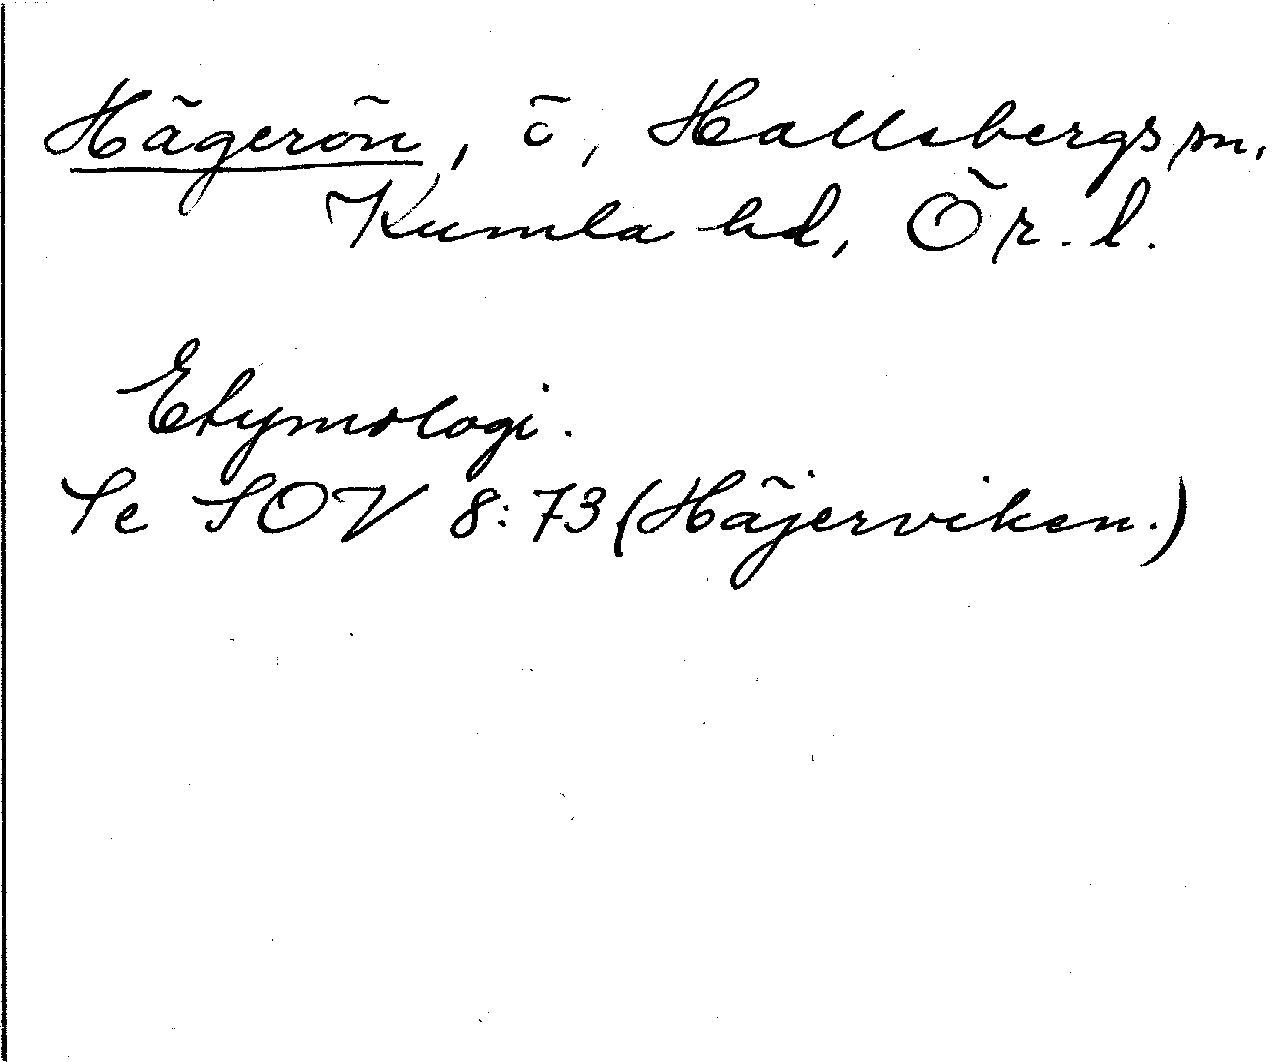 Hägerön, ö, Hallsbergs sn,
Kumla hd, Ör. l.
Etymologi.
Se SOV 8:73 (Häjerviken.)